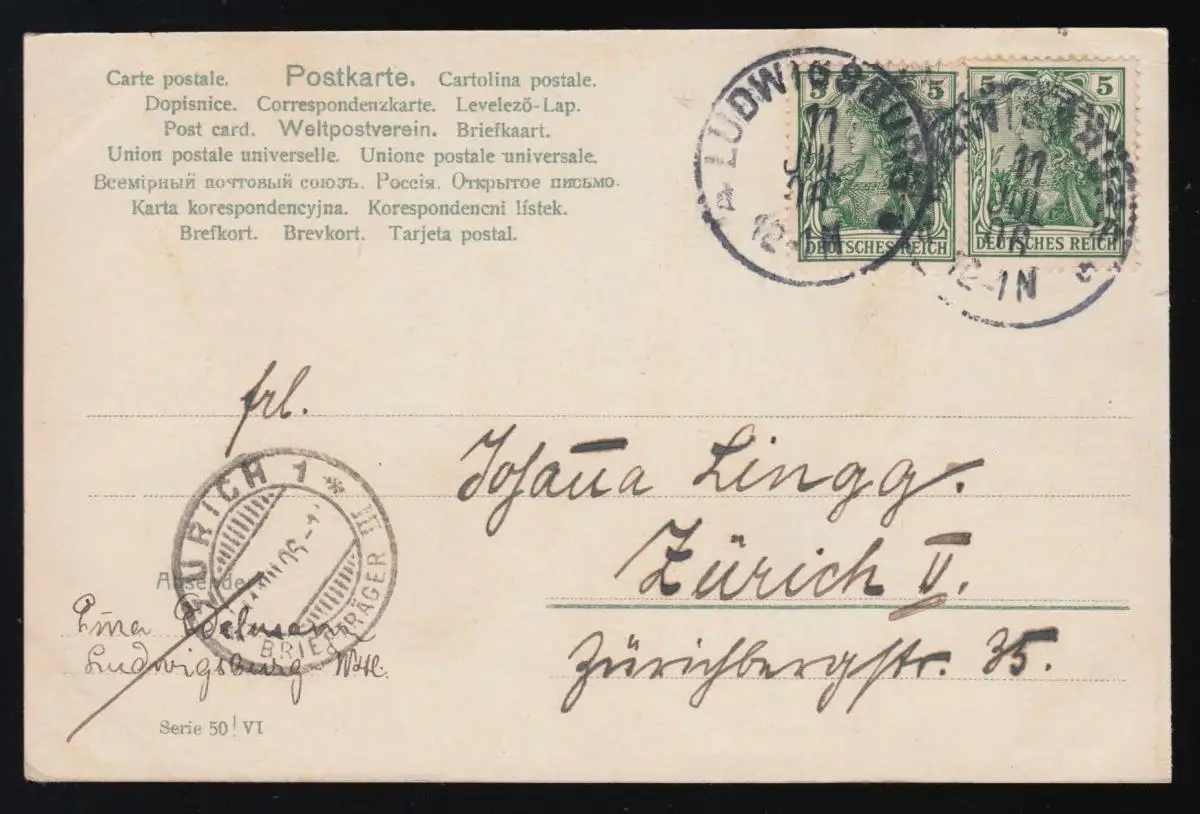 Carte postale. Postkarte. Cartolina postale.
Dopisnice. Correspondenzkarte. Levelező-Lap.
Post card. Weltpostverein. Briefkaart.
Union postale universelle. Unione postale universale.
Всемірный почтовый союзъ. Россія. Открытое письмо.
Karta korespondencyjna. Korespondencni lístek.
Brefkort. Brevkort. Tarjeta postal.
5 5
DEUTSCHES REICH
5 5
DEUTSCHES REICH
LUDWIGSBURG
11
JUL
06
12-1N
11
JUL
06
12-1N
frl.
Johanna Lingg.
Zürich V.
Zürichbergstr. 35.
ZÜRICH 1 * III
BRIEFTRÄGER
Absender:
Ludwigsburg Wttl.
Serie 50 VI